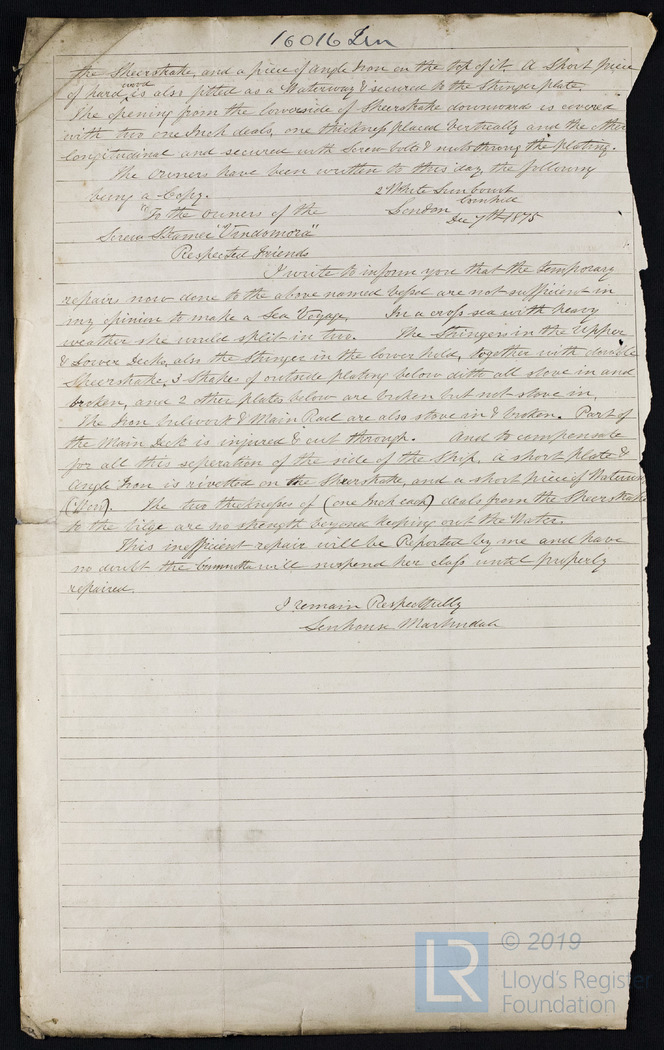 16016 Irn
the Sheerstrake, and a piece of angle Iron on the top of it. A Short piece
of hard wood is also fitted as a Waterway & secured to the Stringer plate.
The opening from the lowerside of Sheerstrake downward is covered
with two one Inch deals, one thickness placed Vertically and the other
longitudinal and secured with Screw bolts & nuts throug the plating.
The Owners have been written to this day the following
being a Copy.
2 White Lion Court
Cornhill
"To the Owners of the
London
Dec 7th 1875
Screw Steamer "Vindomora"
Respected Friends
I write to inform you that the temporary
repairs now done to the above named Vessel are not sufficient in
my opinion to make a Sea Voyage. In a cross sea with heavy
weather she would split in two. The Stringers in the Upper
& Lower Decks, also the Stringer in the lower hold, together with double
Sheerstrake, 3 Strakes of outside plating below ditto all stove in and
broken, and 2 other plates below are broken but not stove in.
The Iron bulwork & Main Rail are also stove in & broken. Part of
the Main Deck is injured & cut through. And to compensate
for all this seperation of the side of the Ship, a short plate &
angle Iron is rivetted on the Sheerstrake, and a short piece of Waterway
The two thicknesses of (one Inch each) deals from the Sheerstrake
to the bilge are no strength beyond keeping out the Water.
This inefficient repair will be Reported by me and have
no doubt the Committee will suspend her class until properly
repaired.
I remain Respectfully
Senhouse Martindale
© 2019
LR
Lloyd's Register
Foundation